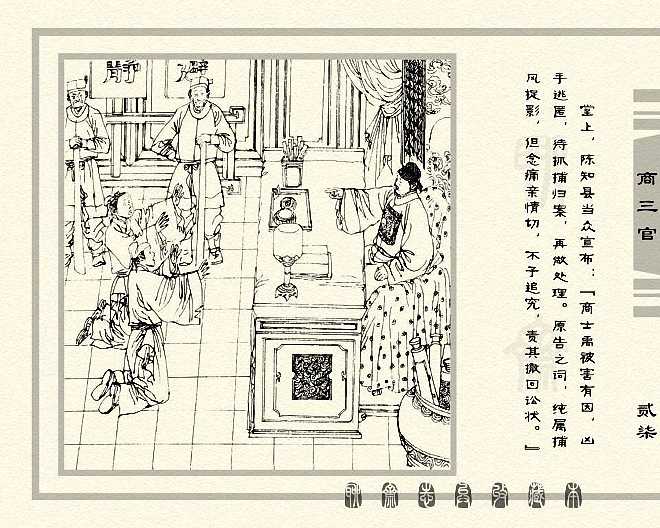 堂上，陈知县当众宣布：『商士禹被害有因，凶
手逃匿，待抓捕归案，再做处理。原告之词，纯属捕
风捉影，但念痛亲情切，不予追究，责其撤回讼状。』
商三官
贰柒